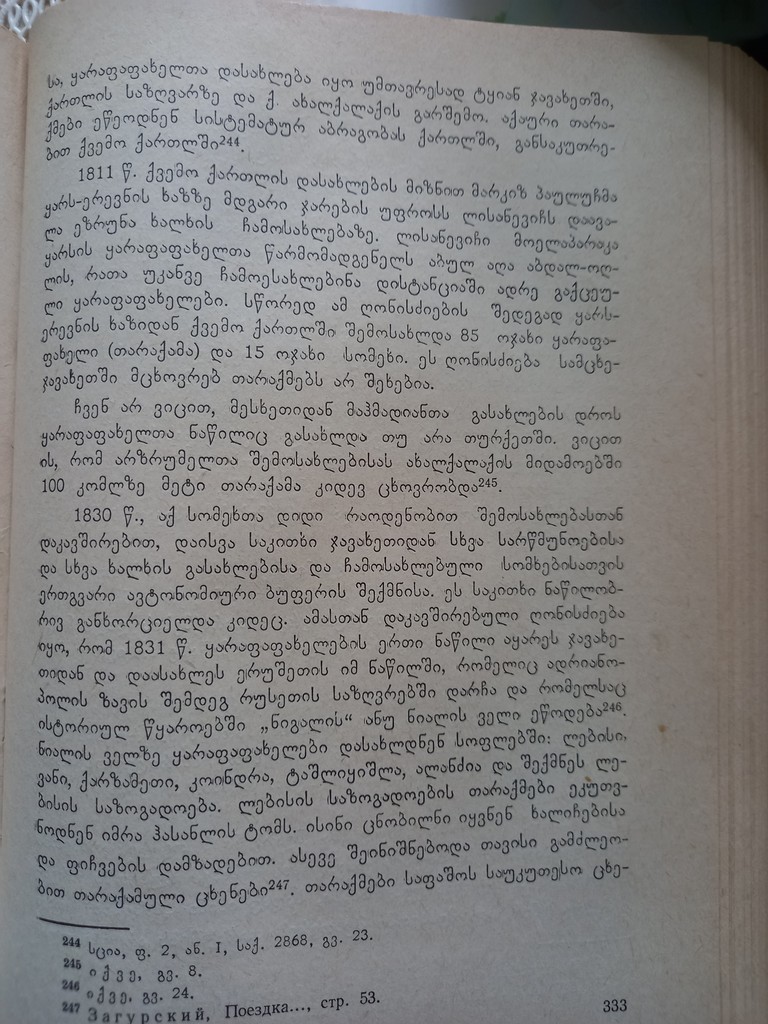 სა, ყარაფაფახელთა დასახლება იყო უმთავრესად ტყიან ჯავახეთში,
ქართლის საზღვარზე და ქ. ახალქალაქის გარშემო. აქაური თარა-
ქმები ეწეოდნენ სისტემატურ აბრაგობას ქართლში, განსაკუთრე-
ბით ქვემო ქართლში²⁴⁴.
1811 წ. ქვემო ქართლის დასახლების მიზნით მარკიზ პაულუჩმა
ყარს-ერევნის ხაზზე მდგარი ჯარების უფროსს ლისანევიჩს დაავა-
ლა ეზრუნა ხალხის ჩამოსახლებაზე. ლისანევიჩი მოელაპარაკა
ყარსის ყარაფაფახელთა წარმომადგენელს აბულ აღა აბდალ-ოღ-
ლის, რათა უკანვე ჩამოესახლებინა დისტანციაში ადრე გაქცეუ-
ლი ყარაფაფახელები. სწორედ ამ ღონისძიების შედეგად ყარს-
ერევნის ხაზიდან ქვემო ქართლში შემოსახლდა 85 ოჯახი ყარაფა-
ფახელი (თარაქამა) და 15 ოჯახი სომეხი. ეს ღონისძიება სამცხე-
ჯავახეთში მცხოვრებ თარაქმებს არ შეხებია.
ჩვენ არ ვიცით, მესხეთიდან მაჰმადიანთა გასახლების დროს
ყარაფაფახელთა ნაწილიც გასახლდა თუ არა თურქეთში. ვიცით
ის, რომ არზრუმელთა შემოსახლებისას ახალქალაქის მიდამოებში
100 კომლზე მეტი თარაქამა კიდევ ცხოვრობდა²⁴⁵.
1830 წ., აქ სომეხთა დიდი რაოდენობით შემოსახლებასთან
დაკავშირებით, დაისვა საკითხი ჯავახეთიდან სხვა სარწმუნოებისა
და სხვა ხალხის გასახლებისა და ჩამოსახლებული სომხებისათვის
ერთგვარი ავტონომიური ბუფერის შექმნისა. ეს საკითხი ნაწილობ-
რივ განხორციელდა კიდეც. ამასთან დაკავშირებული ღონისძიება
იყო, რომ 1831 წ. ყარაფაფახელების ერთი ნაწილი აყარეს ჯავახე-
თიდან და დაასახლეს ერუშეთის იმ ნაწილში, რომელიც ადრიანო-
პოლის ზავის შემდეგ რუსეთის საზღვრებში დარჩა და რომელსაც
ისტორიულ წყაროებში „ნიგალის“ ანუ ნიალის ველი ეწოდება²⁴⁶.
ნიალის ველზე ყარაფაფახელები დასახლდნენ სოფლებში: ლებისი,
ვანი, ქარზამეთი, კოინდრა, ტაშლიყიშლა, ალანძია და შექმნეს ლე-
ბისის საზოგადოება. ლებისის საზოგადოების თარაქმები ეკუთვ-
ნოდნენ იმრა ჰასანლის ტომს. ისინი ცნობილნი იყვნენ ხალიჩებისა
და ფიჩვების დამზადებით. ასევე შეინიშნებოდა თავისი გამძლეო-
ბით თარაქამული ცხენები²⁴⁷. თარაქმები საფაშოს საუკუთესო ცხე-
²⁴⁴ სცია, ფ. 2, ან. I, საქ. 2868, გვ. 23.
²⁴⁵ იქვე, გვ. 8.
²⁴⁶ იქვე, გვ. 24.
²⁴⁷ Загурский, Поездка..., стр. 53.
333